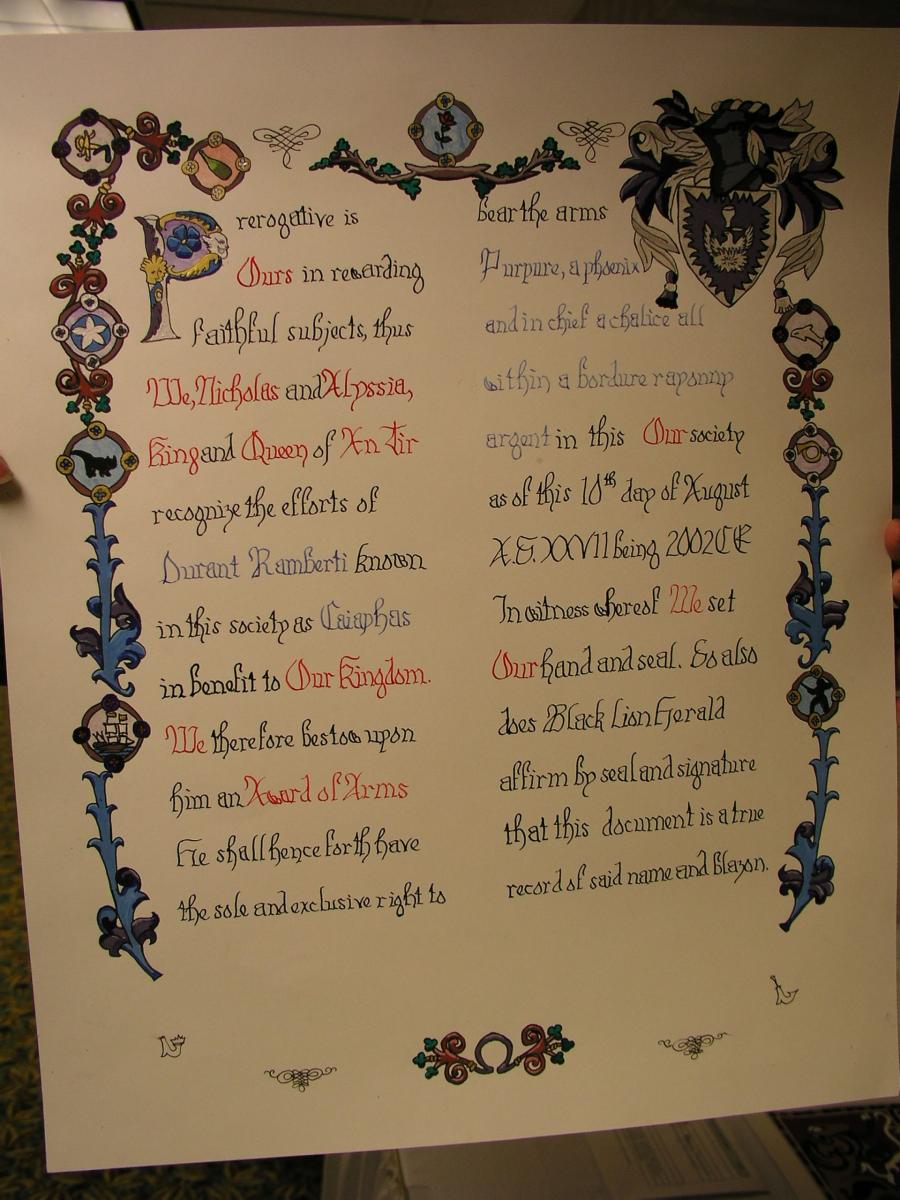 Prerogative is
Ours in rewarding
faithful subjects, thus
We, Nicholas and Alyssia,
King and Queen of An Tir
recognize the efforts of
Durant Ramberti known
in this society as Caiaphas
in benefit to Our Kingdom.
We therefore bestow upon
him an Award of Arms
He shall hence forth have
the sole and exclusive right to
bear the arms
Purpure, a phoenix
and in chief a chalice all
within a bordure rayonny
argent in this Our society
as of this 10th day of August
A.S. XXXVII being 2002CE
In witness whereof We set
Our hand and seal. So also
does Black Lion Herald
affirm by seal and signature
that this document is a true
record of said name and blazon.